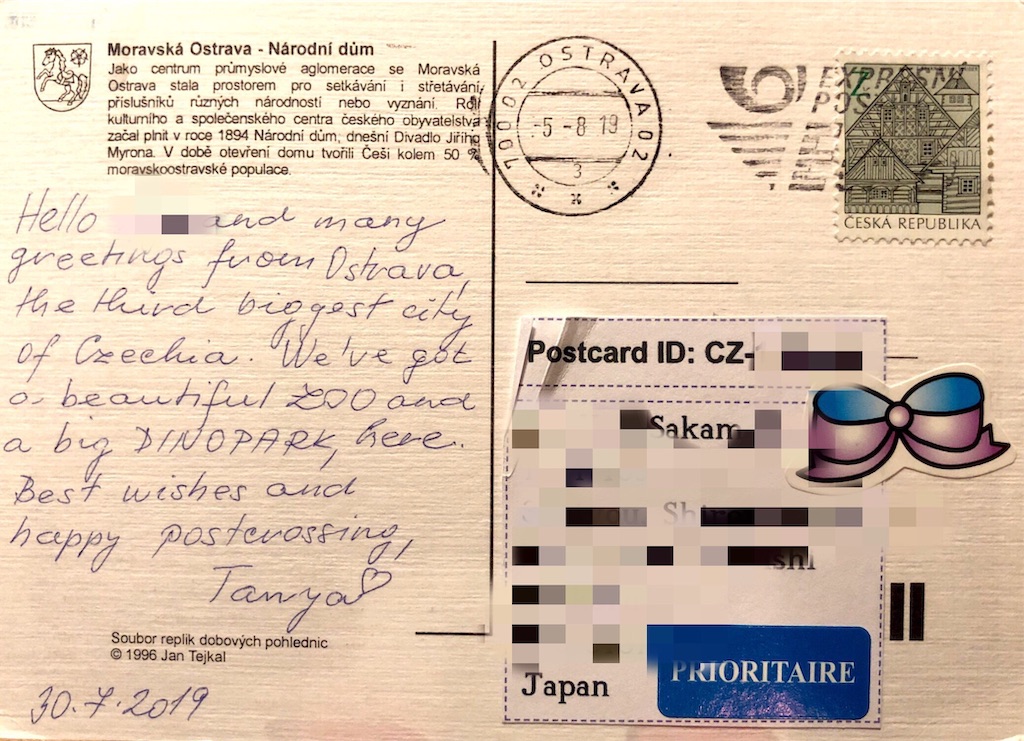 Moravská Ostrava - Národní dům
Jako centrum průmyslové aglomerace se Moravská
Ostrava stala prostorem pro setkávání i střetávání
příslušníků různých národností nebo vyznání. Roli
kulturního a společenského centra českého obyvatelstva
začal plnit v roce 1894 Národní dům, dnešní Divadlo Jiřího
Myrona. V době otevření domu tvořili Češi kolem 50 %
moravskoostravské populace.
Hello and many
greetings from Ostrava,
the third biggest city
of Czechia. We've got
a beautiful ZOO and
a big DINOPARK, here.
Best wishes and
happy postcrossing,
Tanya
Soubor replik dobových pohlednic
© 1996 Jan Tejkal
30.7.2019
70002 OSTRAVA 02
-5.-8 19
3
ČESKÁ REPUBLIKA
Postcard ID: CZ-
Japan
PRIORITAIRE